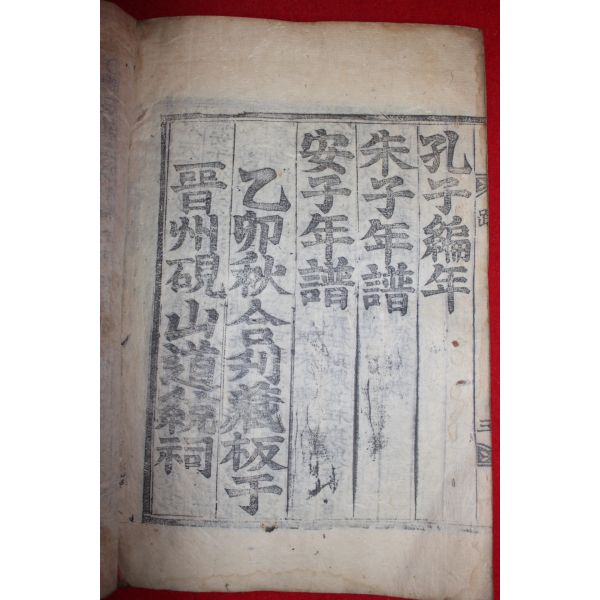 孔子編年
朱子年譜
安子年譜
乙卯秋合刊藏板于
晋州硯山道統祠
跋
三